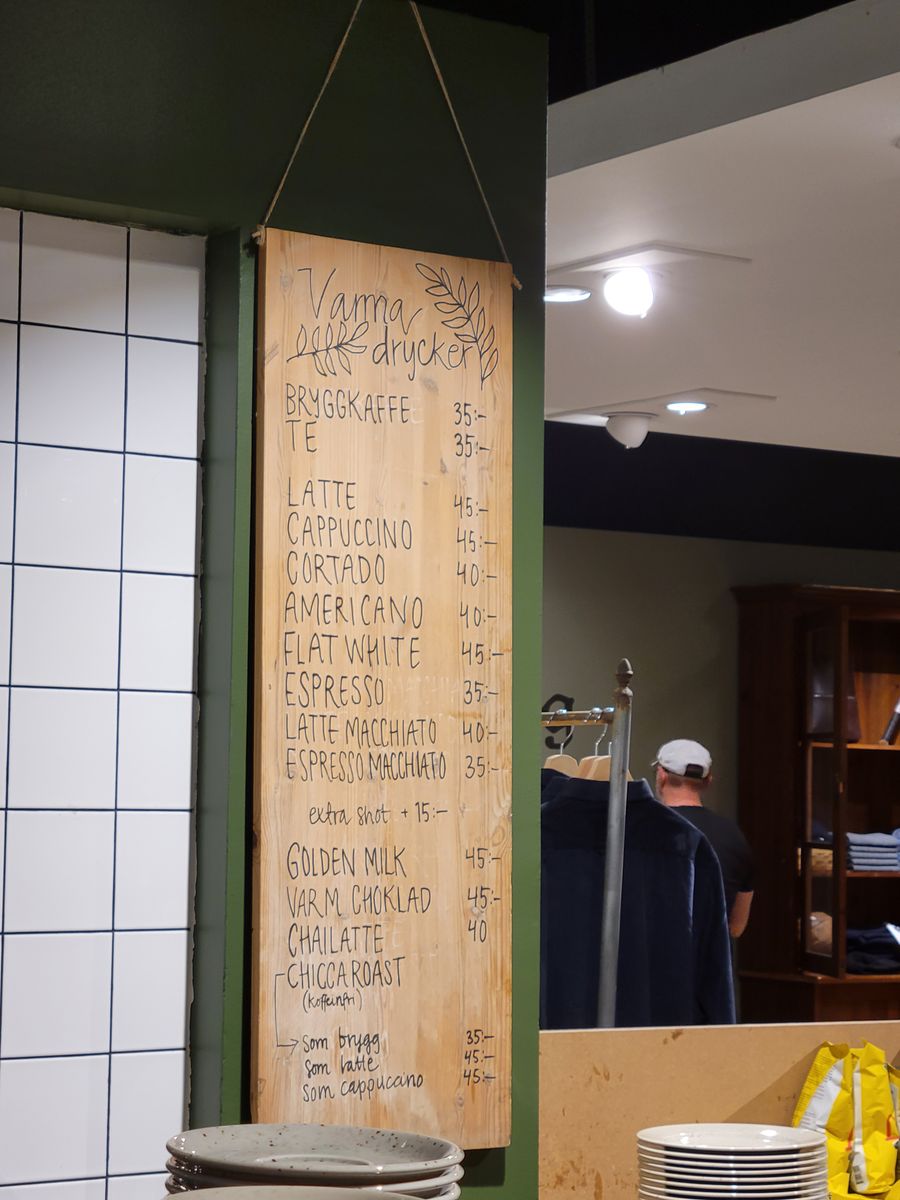 Varma
drycker
BRYGGKAFFE 35:-
TE 35:-
LATTE 45:-
CAPPUCCINO 45:-
CORTADO 40:-
AMERICANO 40:-
FLAT WHITE 45:-
ESPRESSO 35:-
LATTE MACCHIATO 40:-
ESPRESSO MACCHIATO 35:-
extra shot + 15:-
GOLDEN MILK 45:-
VARM CHOKLAD 45:-
CHAILATTE 40
CHICCAROAST
(koffeinfri)
som brygg 35:-
som latte 45:-
som cappuccino 45:-